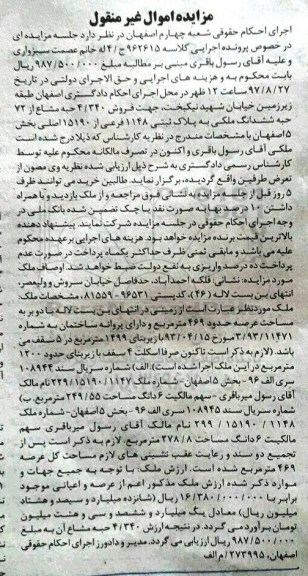 مزایده اموال غیر منقول
اجرای احکام حقوقی شعبه چهارم اصفهان در نظر دارد جلسه مزایده ای
در خصوص پرونده اجرایی کلاسه ۹۶۲۶۱۵ ج/۴ له خانم عصمت سبزواری
و علیه آقای رسول باقری مبنی بر مطالبه مبلغ ۹۸۷/۵۰۰/۰۰۰ ریال
بابت محکوم به و هزینه های اجرایی و حق الاجرای دولتی در تاریخ
۹۷/۸/۲۷ ساعت ۱۲ ظهر در محل اجرای احکام دادگستری اصفهان طبقه
زیرزمین خیابان شهید نیکبخت، جهت فروش ۴/۳۴۰ حبه مشاع از ۷۲
حبه ششدانگ ملکی به پلاک ثبتی ۱۱۴۸ فرعی از ۱۵۱۹۰ اصلی بخش
۵ اصفهان با مشخصات مندرج در نظریه کارشناس که ذیلا درج شده است
ملکی آقای رسول باقری و اکنون در تصرف مالکانه محکوم علیه توسط
کارشناس رسمی دادگستری به شرح ذیل ارزیابی شده نظریه وی مصون از
تعرض طرفین واقع گردیده، برگزار نماید. طالبین خرید می توانند ظرف
۵ روز قبل از جلسه مزایده به نشانی فوق مراجعه و از ملک بازدید و با همراه
داشتن ۱۰ درصد بها به صورت نقد یا چک تضمین شده بانک ملی در
وجه اجرای احکام حقوقی در جلسه مزایده شرکت نمایند. پیشنهاد دهنده
بالاترین قیمت برنده مزایده خواهد بود. هزینه های اجرایی بر عهده محکوم
علیه می باشد و مابقی ثمنی ظرف حداکثر یکماه پرداخت در صورت عدم
پرداخت ده درصد واریزی به نفع دولت ضبط خواهد شد. اوصاف ملک
مورد مزایده: نشانی: فلکه احمدآباد، حدفاصل خیابان سروش و ولیعصر،
انتهای بن بست لاله (۴۶)، کدپستی ۹۶۵۳۱-۸۱۵۵۹، مشخصات ملک
ملک موردنظر عبارت است از زمینی در انتهای بن بست لاله با دو بر به
مساحت عرصه حدود ۴۶۹ مترمربع و دارای پروانه ساختمان به شماره
۳/۹۳/۱۱۴۷۱ مورخ ۹۳/۰۴/۱۵ با زیربنای ۱۴۹۹ مترمربع در ۵ سقف می
باشد. (لازم به ذکر است تاکنون صرفا اسکلت ۴ سقف با زیربنای حدود ۱۲۰۰
مترمربع در این ملک اجرا شده است). الف) شماره سریال سند ۱۰۸۹۴۴
سری الف ۹۶- بخش ۵ اصفهان- شماره ملک ۱۱۴۷/۱۵۱۹۰/۲۲۹ نام مالک
آقای رسول میرباقری - سهم مالکیت ۶ دانگ مساحت ۲۴۹/۵۵ مترمربع، ب)
شماره سریال سند ۱۰۸۹۴۵ سری الف ۹۶- بخش ۵ اصفهان- شماره ملک
۱۱۴۸/۱۵۱۹۰/۲۹۹ نام مالک آقای رسول میرباقری سهم
مالکیت ۶ دانگ مساحت ۲۷۸/۸ مترمربع. لازم به ذکر است پس از
تجمیع دو سند و رعایت عقب نشینی های لازم مساحت کل عرصه
۴۶۹ مترمربع شده است. ارزش ملک: با توجه به جمیع جهات و
موارد ذکر شده ارزش ملک مذکور اعم از عرصه و اعیانی موجود
برابر با ۱۶/۳۸۰/۰۰۰/۰۰۰ ریال (شانزده میلیارد و سیصد و هشتاد
میلیون ریال) معادل یک میلیارد و ششصد و سی و هشت میلیون
تومان برآورد می گردد. در نتیجه ارزش ۴/۳۴۰ حبه مشاع آن به مبلغ
۹۸۷/۵۰۰/۰۰۰ ریال ارزیابی می گردد. مدیر و دادورز اجرای احکام حقوقی
اصفهان. ۲۷۳۹۹۵/م الف